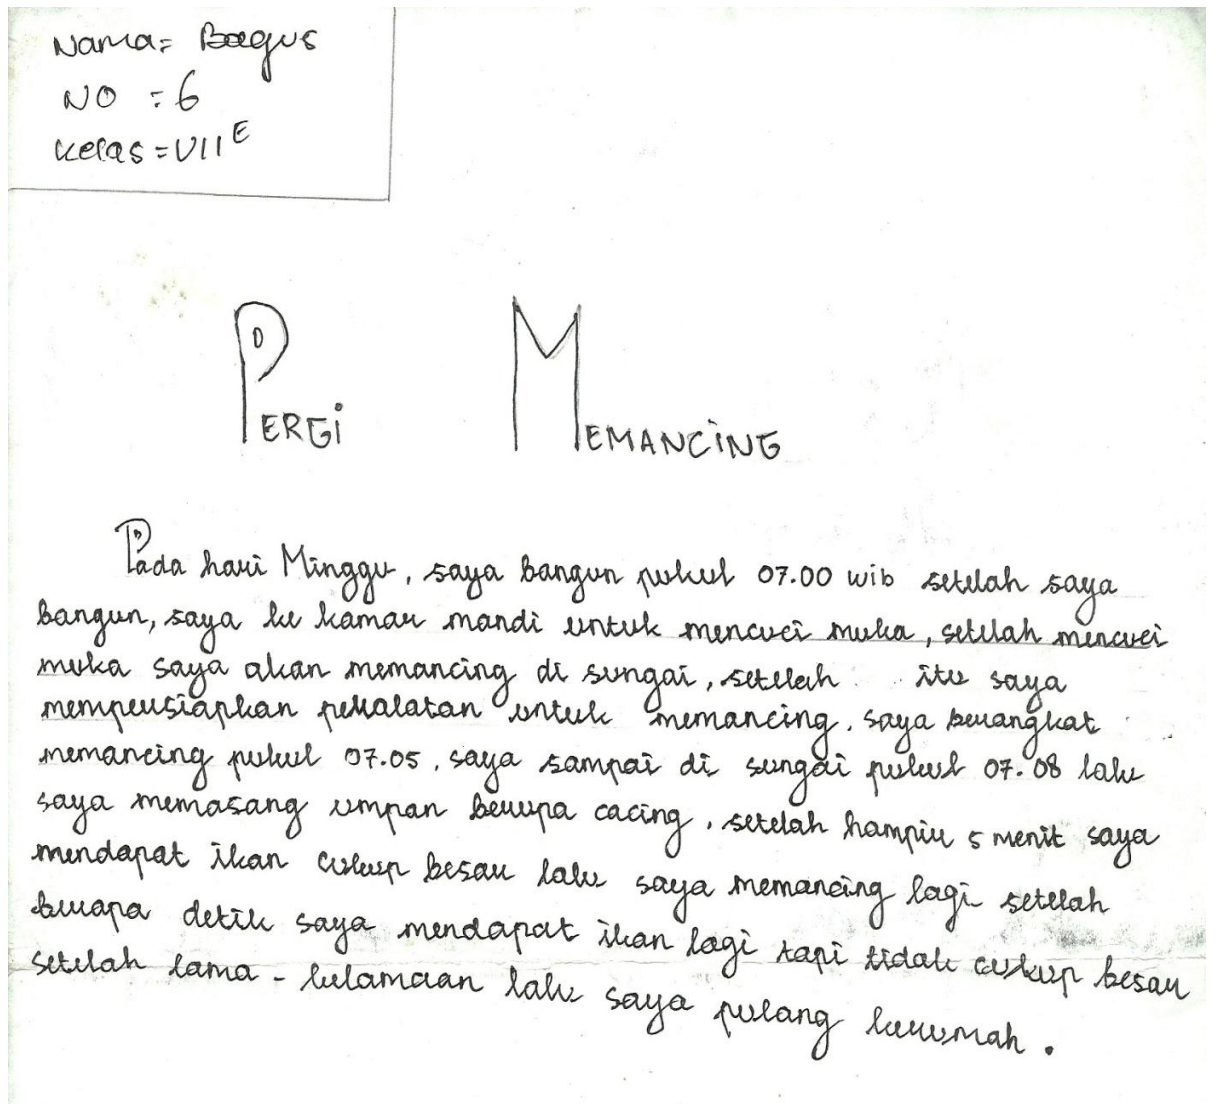 Nama= Bagus
NO = 6
Kelas = VII E
PERGi MEMANCiNG
Pada hari Minggu, saya bangun pukul 07.00 wib setelah saya
bangun, saya ke kamar mandi untuk mencuci muka, setelah mencuci
muka saya akan memancing di sungai, setelah itu saya
mempersiapkan peralatan untuk memancing. saya berangkat
memancing pukul 07.05. saya sampai di sungai pukul 07.08 lalu
saya memasang umpan berupa cacing. setelah hampir 5 menit saya
mendapat ikan cukup besar lalu saya memancing lagi setelah
berapa detik saya mendapat ikan lagi tapi tidak cukup besar
setelah lama - kelamaan lalu saya pulang kerumah.